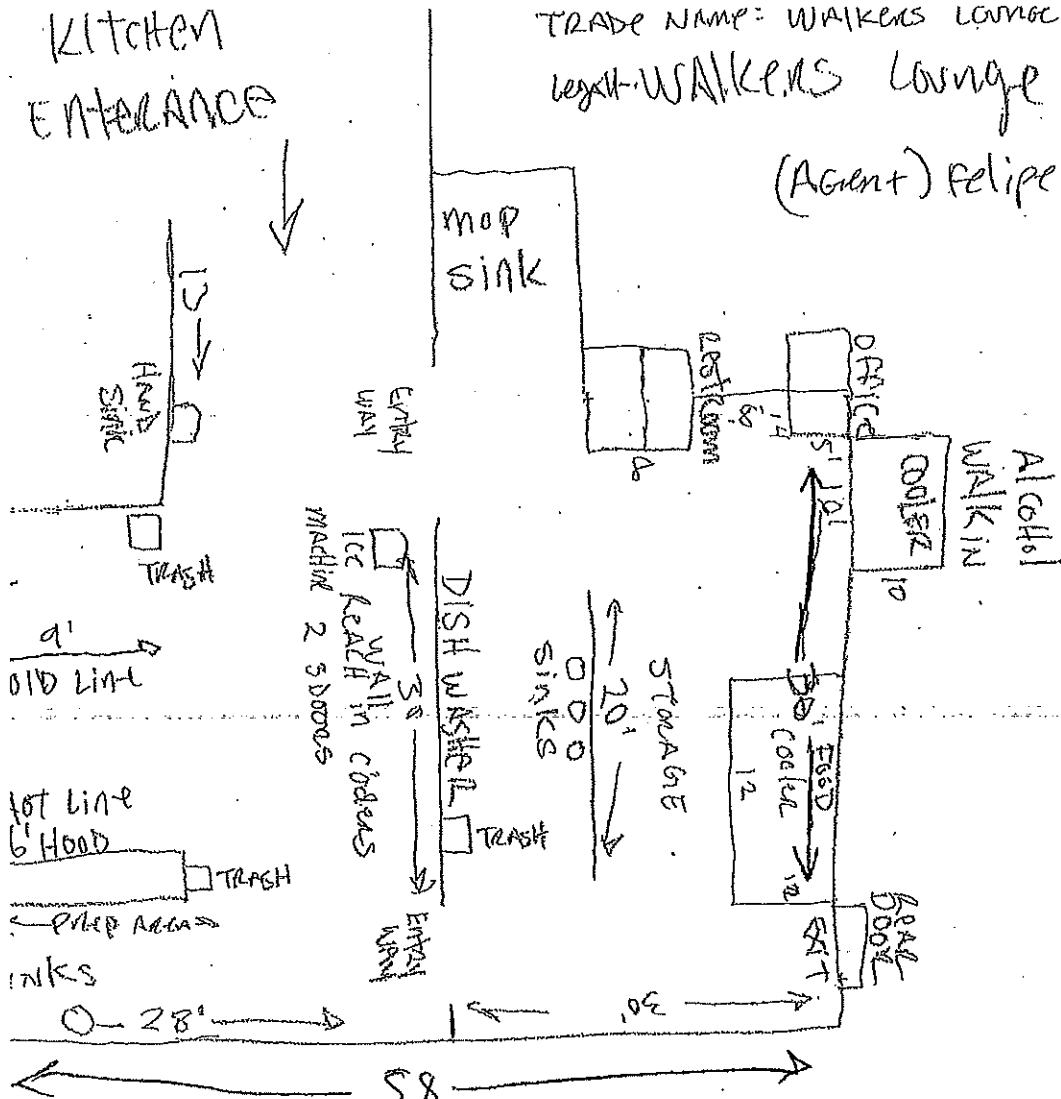 KITCHEN
ENTERANCE
TRADE NAME: WALKERS LOUNGE
Legal: WALKERS Lounge
(Agent) Felipe
mop
sink
13
HAND
SINK
Entry
WAY
RESTROOM
8
8
OFFICE
14
5'
10'
Alcohol
WALK IN
COOLER
10
TRASH
9'
OLD LINE
ICE
MACHINE
WALL
REACH IN COOLERS
2 3 DOORS
30
DISH WASHER
TRASH
SINKS
20'
STORAGE
30'
FOOD
COOLER
12
12
HOT LINE
6' HOOD
TRASH
PREP AREA
INKS
Entry
WAY
REAR
DOOR
EXIT
28'
30'
58